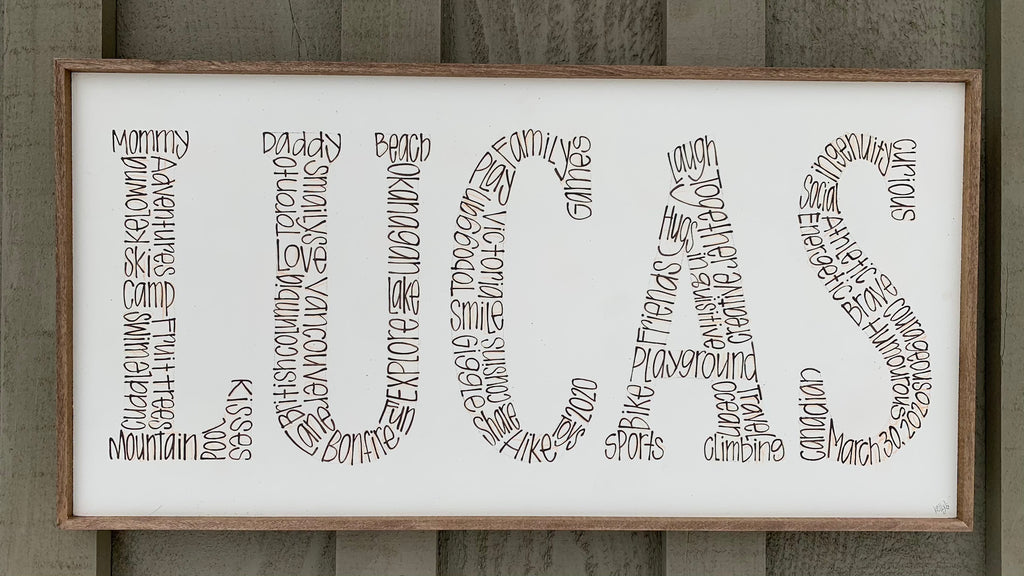 Mommy
Adventures
ski
camp
Fruit trees
swim
Mountain
pool
Kisses
Daddy
Toronto
smart
Love
Vancouver
British Columbia
Bonfire
Fun
EXPLORE
Lake
Okanagan
Beach
Family
Games
Play
Victoria
Toboggan
Smile
Giggle
cousins
Share
Hike
2020
laugh
Together
Hugs
creative
inquisitive
Friends
Playground
Bike
Ocean
Travel
sports
climbing
ingenuity
curious
Social
Athletic
Energetic
Brave
courageous
Humourous
canadian
March 30. 2020